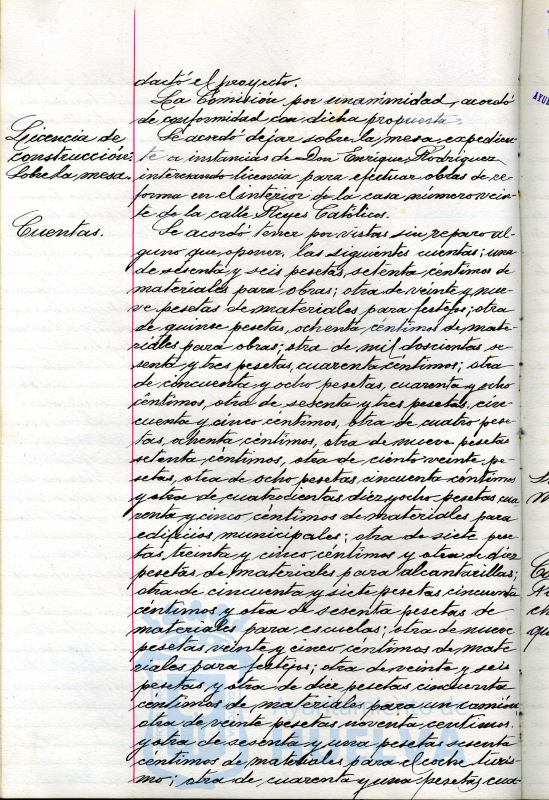 dactó el proyecto.
La Comisión, por unanimidad, acordó
de conformidad con dicha propuesta.
Licencia de
construcción.
Sobre la mesa.
Se acordó dejar sobre la mesa, expedien-
te a instancias de Don Enrique Rodríguez
interesando licencia para efectuar obras de re-
forma en el interior de la casa número vein-
te de la calle Reyes Católicos.
Cuentas.
Se acordó tener por vistas sin reparo al-
guno que oponer, las siguientes cuentas; una
de sesenta y seis pesetas, setenta céntimos de
materiales para obras; otra de veinte y nue-
ve pesetas de materiales para festejos; otra
de quinse pesetas, ochenta céntimos de mate-
riales para obras; otra de mil doscientas, se-
senta y tres pesetas, cuarenta céntimos; otra
de cincuenta y ocho pesetas, cuarenta y ocho
céntimos, otra de sesenta y tres pesetas, cin-
cuenta y cinco céntimos, otra de cuatro pese-
tas, ochenta céntimos, otra de nueve pesetas
setenta céntimos, otra de ciento veinte pe-
setas, otra de ocho pesetas, cincuenta céntimos
y otra de cuatrocientas diez y ocho pesetas, cua-
renta y cinco céntimos de materiales para
edificios municipales; otra de siete pese-
tas, treinta y cinco céntimos y otra de diez
pesetas de materiales para alcantarillas;
otra de cincuenta y siete pesetas, cincuenta
céntimos y otra de sesenta pesetas de
materiales para escuelas; otra de nueve
pesetas, veinte y cinco céntimos de mate-
riales para festejos; otra de veinte y seis
pesetas y otra de diez pesetas cincuenta
céntimos de materiales para un camión
otra de veinte pesetas noventa céntimos.
y otra de sesenta y una pesetas sesenta
céntimos de materiales para el coche turis-
mo; otra de cuarenta y una pesetas, cua-
Ayuntamiento de
HUELVA